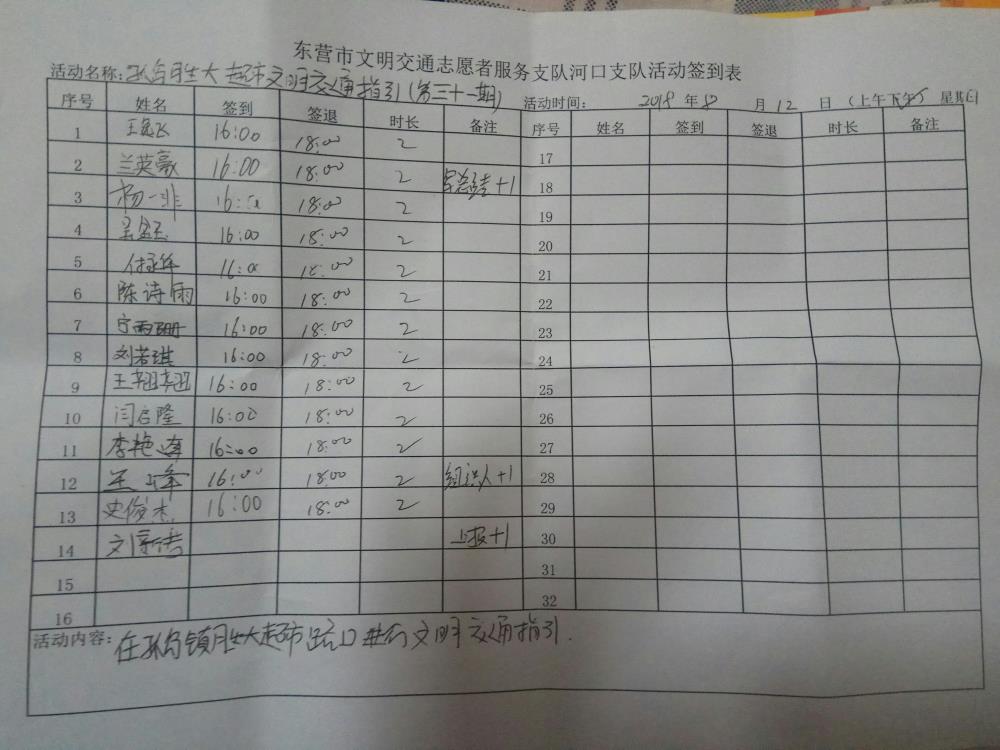 东营市文明交通志愿者服务支队河口支队活动签到表
活动名称:孤岛胜大超市文明交通指引(第三十一期) 活动时间: 2018 年 8 月 12 日 (上午下午) 星期日
序号 姓名 签到 签退 时长 备注 序号 姓名 签到 签退 时长 备注
1 16:00 18:00 2 17
2 兰英豪 16:00 18:00 2 +1 18
3 杨一非 16:00 18:00 2 19
4 16:00 18:00 2 20
5 16:00 18:00 2 21
6 陈诗雨 16:00 18:00 2 22
7 宁雨珊 16:00 18:00 2 23
8 刘若琪 16:00 18:00 2 24
9 王翔翔 16:00 18:00 2 25
10 闫启隆 16:00 18:00 2 26
11 李艳 16:00 18:00 2 27
12 16:00 18:00 2 组织人+1 28
13 史俊杰 16:00 18:00 2 29
14 刘新 上报+1 30
15 31
16 32
活动内容: 在孤岛镇胜大超市路口进行文明交通指引.